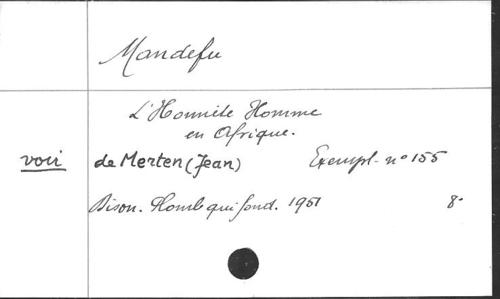 Mandefu
L'Honnête Homme
en Afrique.
voir de Merten (Jean) Exempl. n° 155
Dison. Plomb qui fond. 1951 8°